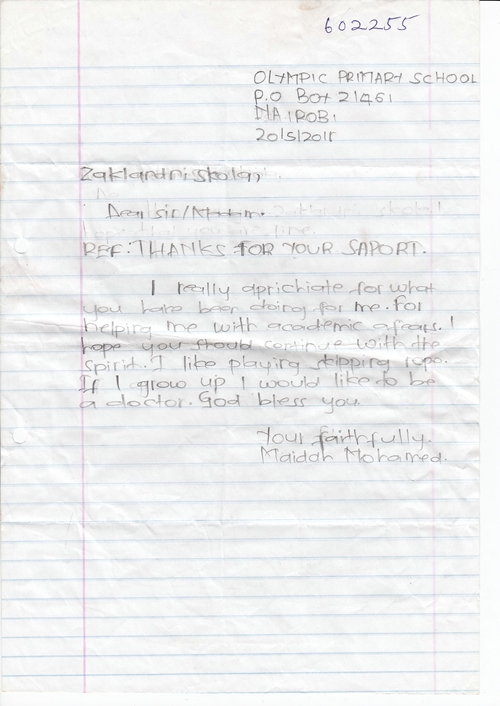 602255
OLYMPIC PRIMARY SCHOOL
P.O Box 21461
NAIROBI
20/5/2011
Zakladni skola,
Dear sir/Madam.
REF: THANKS FOR YOUR SAPORT.
I really aprichiate for what
you have been doing for me. For
helping me with academic afears. I
hope you should continue with the
spirit. I like playing skipping rope.
If I grow up I would like to be
a doctor. God bless you.
Your faithfully.
Maidah Mohamed.